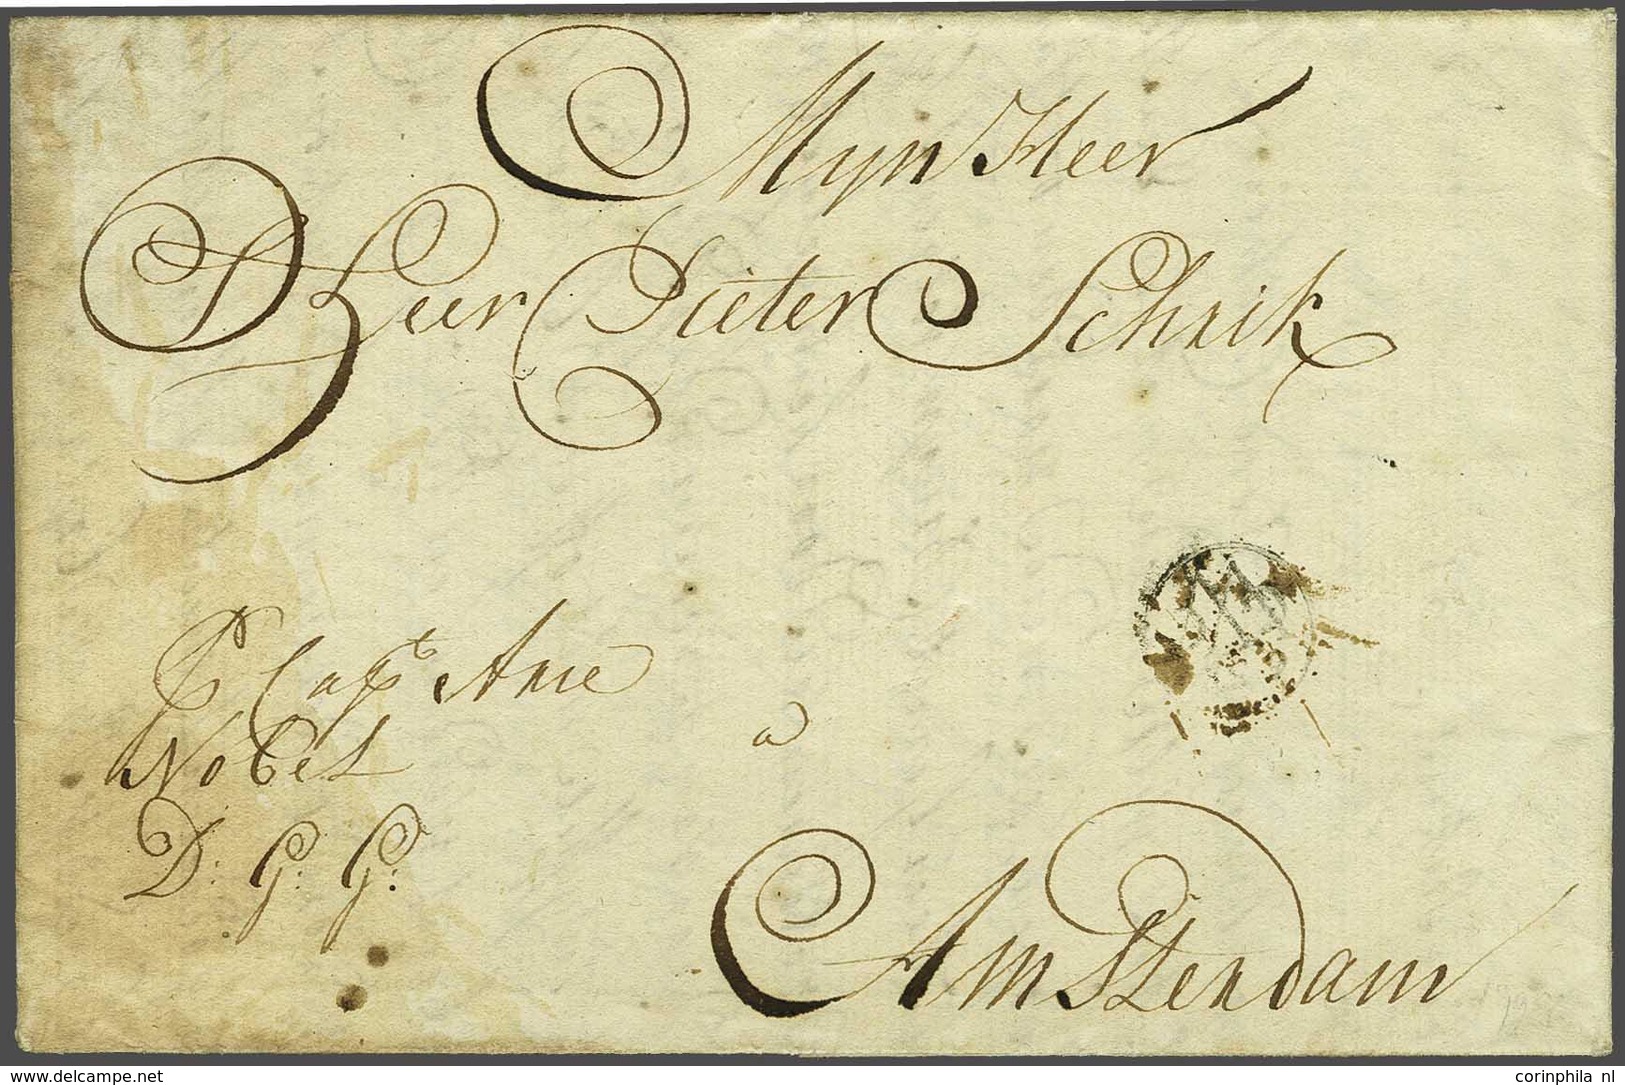 Mijn Heer
D Heer Pieter Schrik
P Capt Arie
Nobel
D: G: G:
a
Amsterdam
www.delcampe.net
corinphila nl